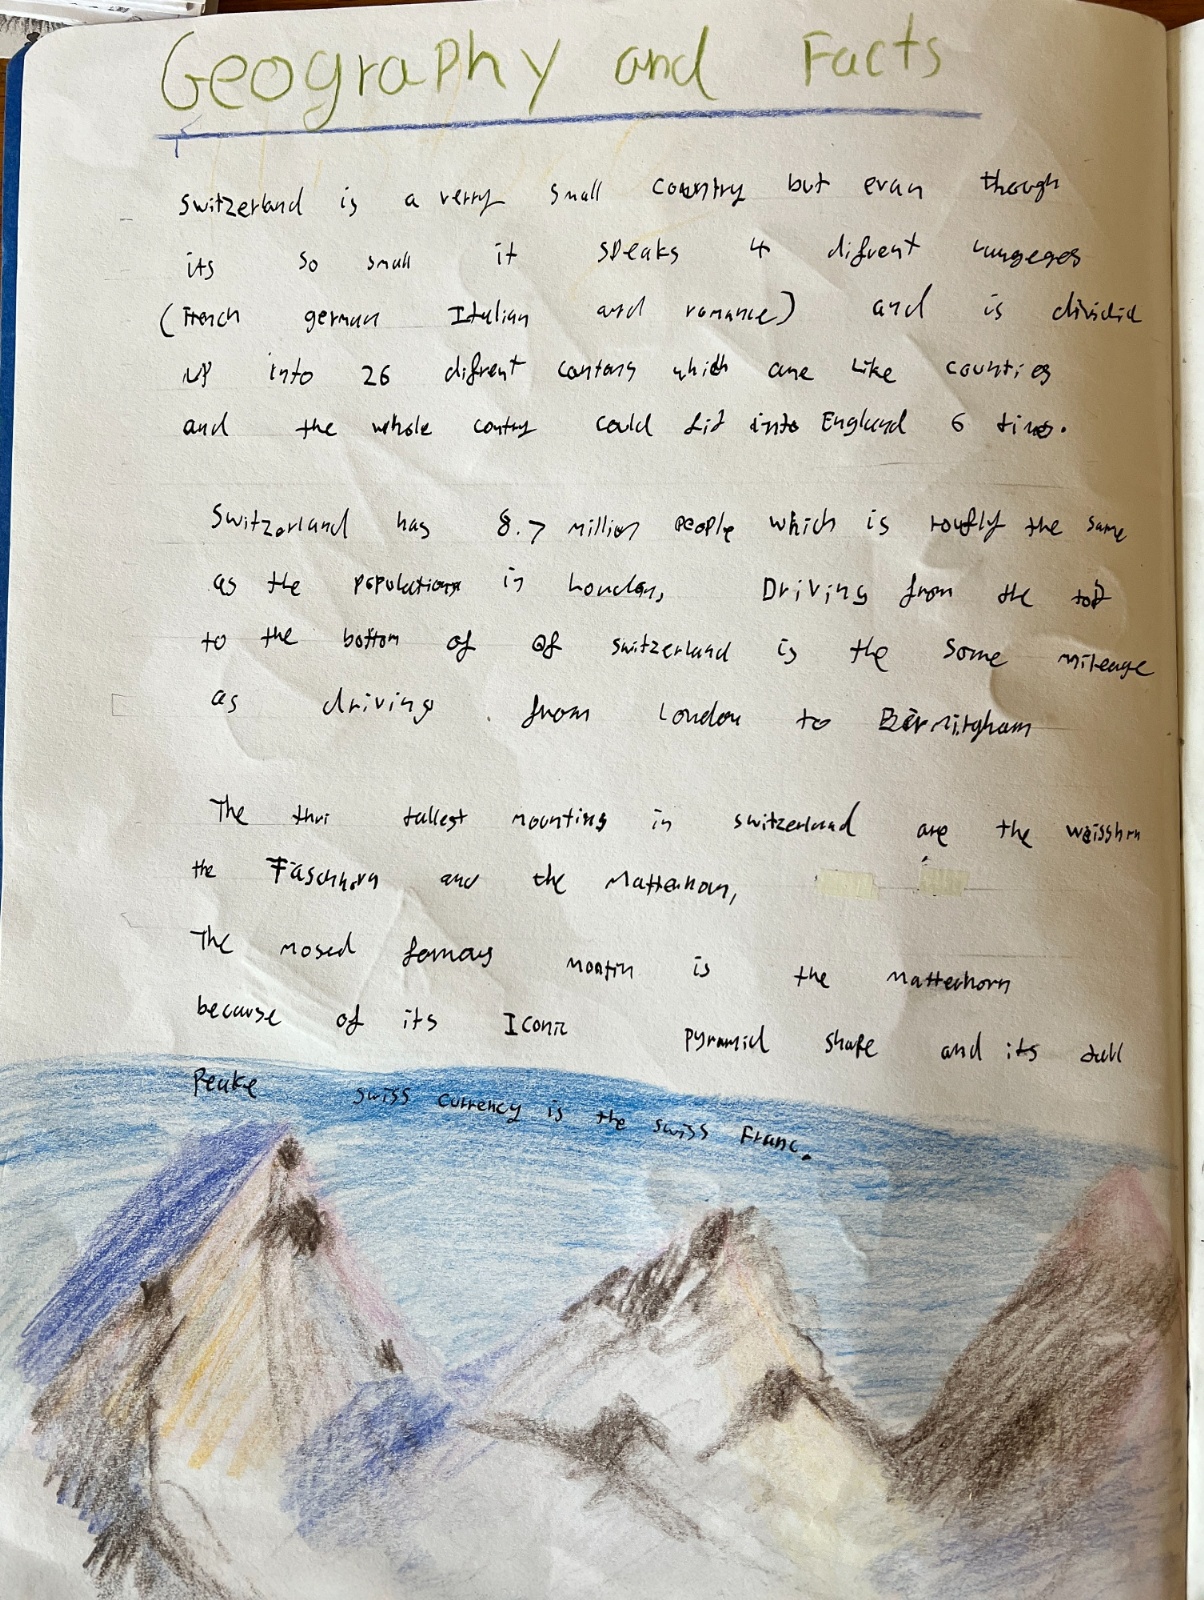 Geography and Facts
Switzerland is a verry small country but evan though
its so small it speaks 4 difrent
(French german Italian and romance) and is dividid
up into 26 difrent contons which are like counties
and the whole contry could fit into England 6 times.
Switzerland has 8.7 million people which is roufly the same
as the populations in London, Driving from the top
to the bottom of of switzerland is the some mileage
as driving from London to Birmingham
The thri tallest mountins in switzerland are the weisshrn
the Täschhorn and the Matterhorn,
The mosed famous montin is the matterhorn
because of its Iconic pyramid shape and its tall
Peake swiss currency is the swiss Franc.